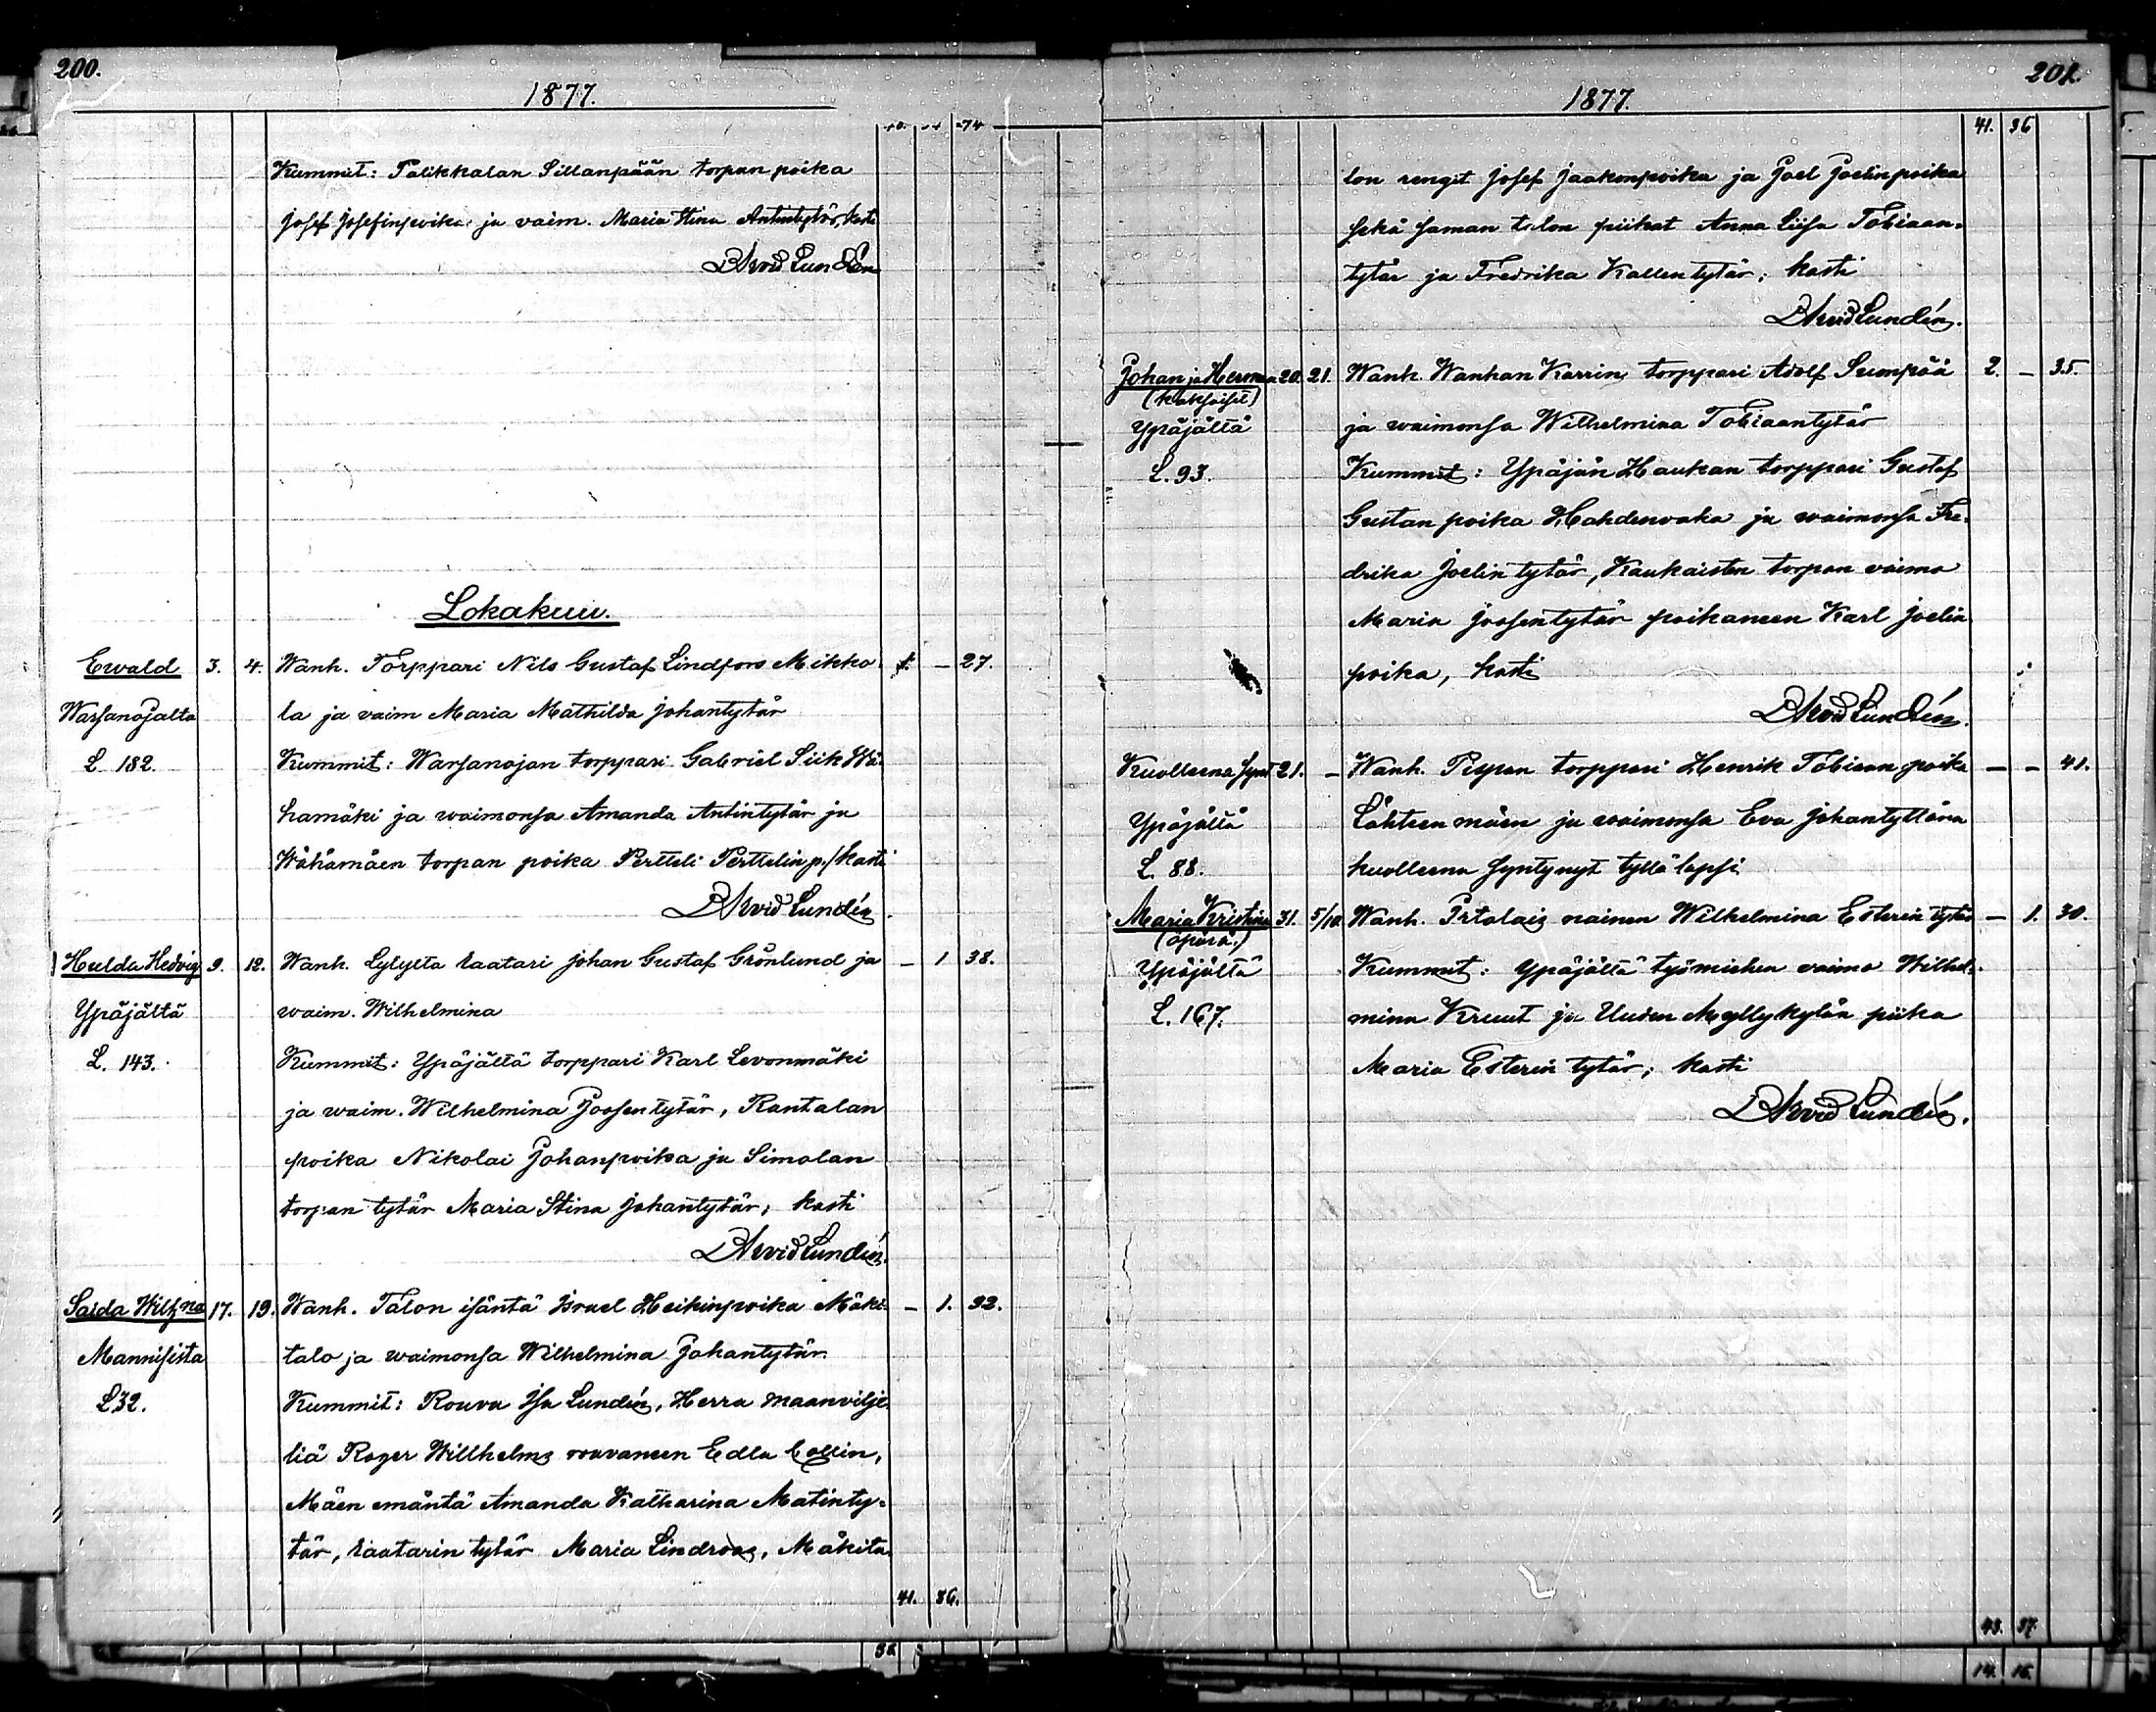 200.
1877.
74
Kummit: Palikkalan Sillanpään torpan poika
Josef Josefinpoika ja vaim. Maria Stina Antintytär, kasti
B Arvid Lundén
Lokakuu.
Ewald 3. 4. Wanh. Torppari Nils Gustaf Lindfors Mikko 1. — 27.
Warsanojalta la ja vaim Maria Mathilda Johantytär
L 182. Kummit: Warsanojan torppari Gabriel Siik Wä-
hamäki ja waimonsa Amanda Antintytär ja
Wähämäen torpan poika Pertteli Perttelin p./kasti
B Arvid Lundén.
Hulda Hedvig 9. 12. Wanh. Lylylta raatari Johan Gustaf Grönlund ja — 1 38.
Ypäjältä waim. Wilhelmina
L. 143. Kummit: Ypäjältä torppari Karl Levonmäki
ja waim. Wilhelmina Joosentytär, Rantalan
poika Nikolai Johanpoika ja Simolan
torpan tytär Maria Stina Johantytär; kasti
B Arvid Lundén.
Saida Wilh:na 17. 19. Wanh. Talon isäntä Israel Heikinpoika Mäki- — 1. 32.
Mannisista talo ja waimonsa Wilhelmina Johantytär.
L 32. Kummit: Rouva Isa Lundén, Herra maanvilje-
liä Roger Willhelms rouvaneen Edla Collin,
Mäen emäntä Amanda Katharina Matinty-
tär, raatarin tytär Maria Lindroos, Mäkita-
41. 36.
201.
1877.
41. 36
lon rengit Josef Jaakonpoika ja Joel Joelinpoika
sekä saman talon piikat Anna Liisa Tobiaan-
tytär ja Fredrika Kallentytär; kasti
B Arvid Lundén.
Johan ja Herman 20. 21. Wanh. Wanhan Karrin torppari Adolf Sumpää 2. — 35.
(kaksoiset)
Ypäjältä ja waimonsa Wilhelmina Tobiaantytär
L. 93. Kummit: Ypäjän Haukan torppari Gustaf
Gustan poika Hahdenvaka ja waimonsa Fre-
drika Joelin tytär, Kaukaisten torpan vaimo
Maria Joosentytär poikaneen Karl Joelin
poika, kasti
B Arvid Lundén.
Kuolleena synt 21. — Wanh. Pispan torppari Henrik Tobiaan poika — — 41.
Ypäjältä Lähteenmäen ja waimonsa Eva Johantyttären
L. 88. kuolleena syntynyt tyttölapsi
Maria Kristina 31. 5/10. Wanh. Irtolais nainen Wilhelmina Esterin tytär — 1. 30.
(äpärä.)
Ypäjältä Kummit: Ypäjältä työmiehen vaimo Wilhel-
L. 167. mina Kruut ja Uuden Myllykylän piika
Maria Esterin tytär; kasti
B Arvid Lundén.
43. 37.
14. 16.